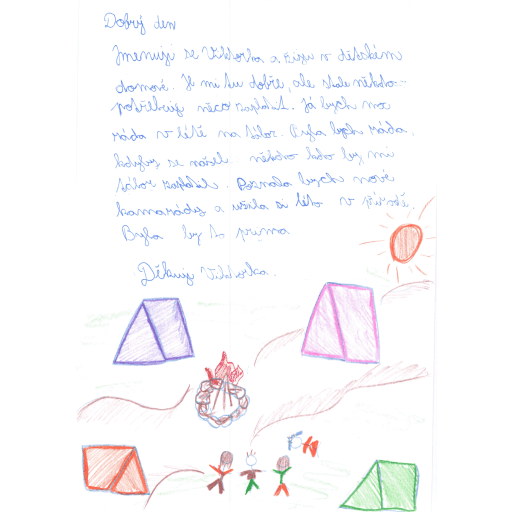 Dobrý den
Jmenuji se Viktorka a žiju v dětském
domově. Je mi tu dobře, ale stále někdo
potřebuje něco zaplatit. Já bych moc
ráda v létě na tábor. Byla bych ráda,
kdyby se našel někdo kdo by mi
tábor zaplatil. Poznala bych nové
kamarády a užila si léto v přírodě.
Byla by to prima
Děkuji Viktorka.